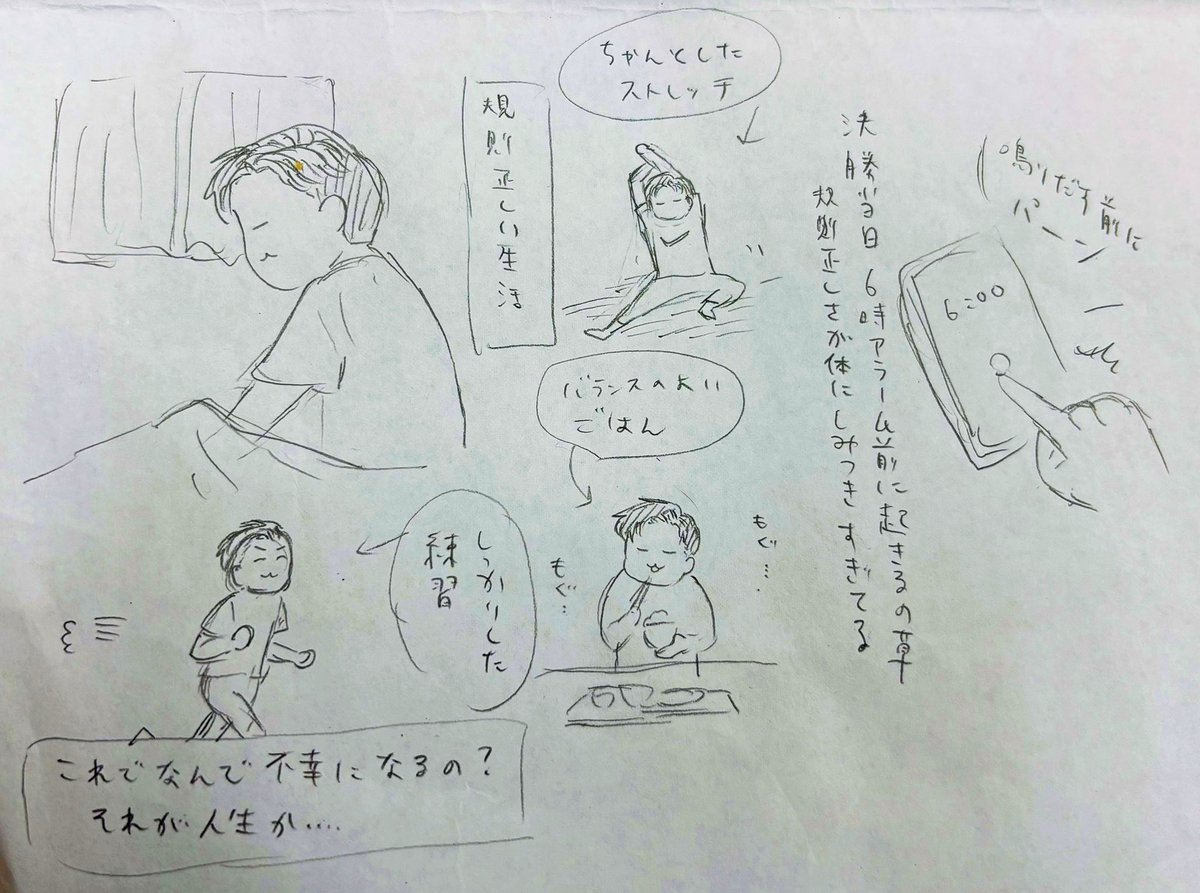 鳴りだす前に
パーン
6:00
決勝当日 6時アラーム前に起きるの草
規則正しさが体にしみつきすぎてる
ちゃんとした
ストレッチ
規則正しい生活
バランスのよい
ごはん
もぐ…
もぐ…
しっかりした
練習
これでなんで不幸になるの?
それが人生か....